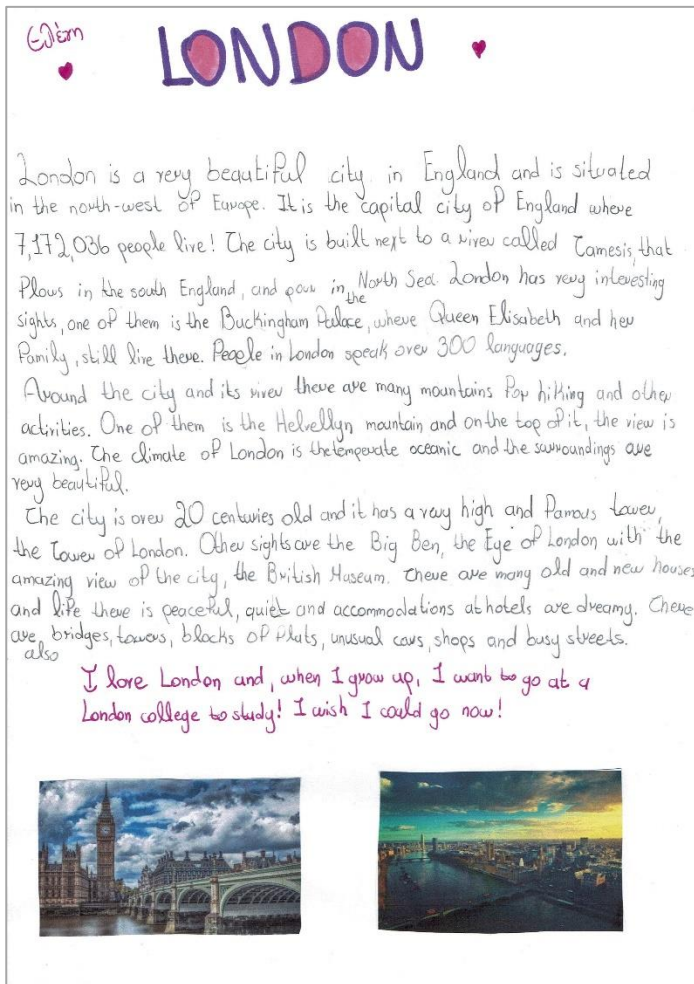 Ελένη
LONDON
London is a very beautiful city in England and is situated
in the north-west of Europe. It is the capital city of England where
7,172,036 people live! The city is built next to a river called Tamesis, that
flows in the south England, and pour in the North Sea. London has very interesting
sights, one of them is the Buckingham Palace, where Queen Elisabeth and her
family, still live there. People in London speak over 300 languages.
Around the city and its river there are many mountains for hiking and other
activities. One of them is the Helvellyn mountain and on the top of it, the view is
amazing. The climate of London is the temperate oceanic and the surroundings are
very beautiful.
The city is over 20 centuries old and it has a very high and famous tower,
the Tower of London. Other sights are the Big Ben, the Eye of London with the
amazing view of the city, the British Museum. There are many old and new houses
and life there is peaceful, quiet and accommodations at hotels are dreamy. There
are also bridges, towers, blocks of flats, unusual cars, shops and busy streets.
I love London and, when I grow up, I want to go at a
London college to study! I wish I could go now!